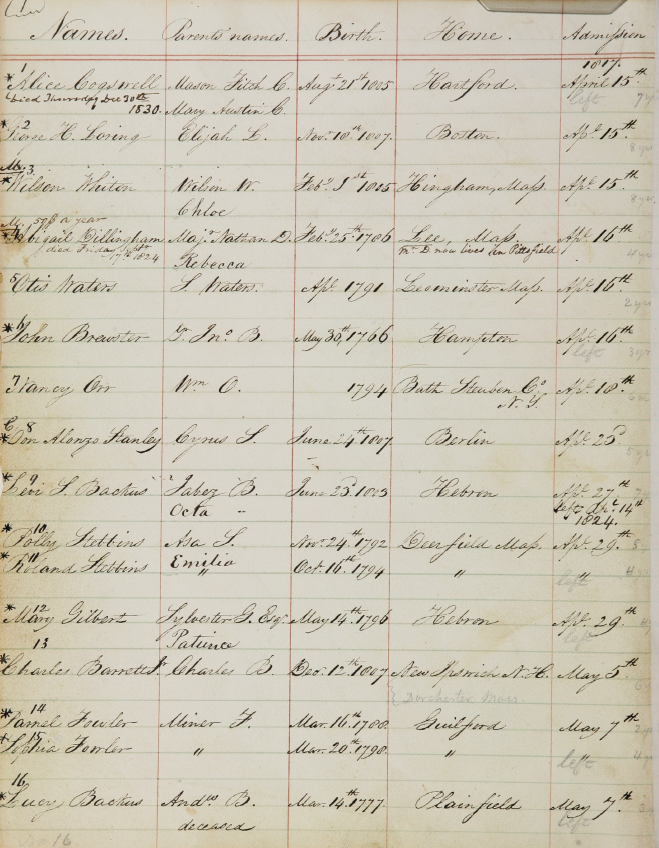 Names. Parents names. Birth. Home. Admission
1817.
1
*Alice Cogswell Mason Fitch C. Augt 21st 1805 Hartford. April 15th
Died Thursday Dec 30th left
1830. Mary Austin C.
*2
George H. Loring Elijah L. Nov. 10th 1807. Boston. Apl. 15th
M. 3.
*Wilson Whiton Wilson W. Feby 1st 1805 Hingham, Mass. Apl. 15th
Chloe
50$ a year
*Abigail Dillingham Maj. Nathan D. Feby 25th 1786 Lee, Mass. Apl. 16th
died Friday Mr D now lives in Pittsfield
17th 1824 Rebecca
5 Otis Waters S. Waters. Apl. 1791 Leominster Mass. Apl. 16th
6
*John Brewster Dr Jno B. May 30th, 1766 Hampton Apl. 16th
left
7 Nancy Orr Wm O. 1794 Bath Steuben Co Apl. 18th
N. Y.
C. 8
*Don Alonzo Stanley Cyrus S. June 24th 1807 Berlin Apl. 25
9
*Levi S. Backus Jabez B. June 23d 1803 Hebron Apl. 27th
Octa " left Dec 14th
1824.
*10
Polly Stebbins Asa S. Nov. 24th 1792 Deerfield Mass. Apl. 29th
*11
Roland Stebbins Emilia Oct. 16th 1794 " "
" left
*12
Mary Gilbert Sylvester G. Esqr. May 14th 1796 Hebron Apl. 29th
left
13 Patience
*Charles Barrett Jr Charles B. Dec. 12th 1807 New Ipswich N. H. May 5th
Dorchester Mass
*14
Parnel Fowler Miner F. Mar. 16th 1788. Guilford May 7th
*15
Sophia Fowler " Mar. 20th 1790. " "
left
16
*Lucy Backus Andw B. Mar. 14th 1777. Plainfield May 7th
deceased left
16